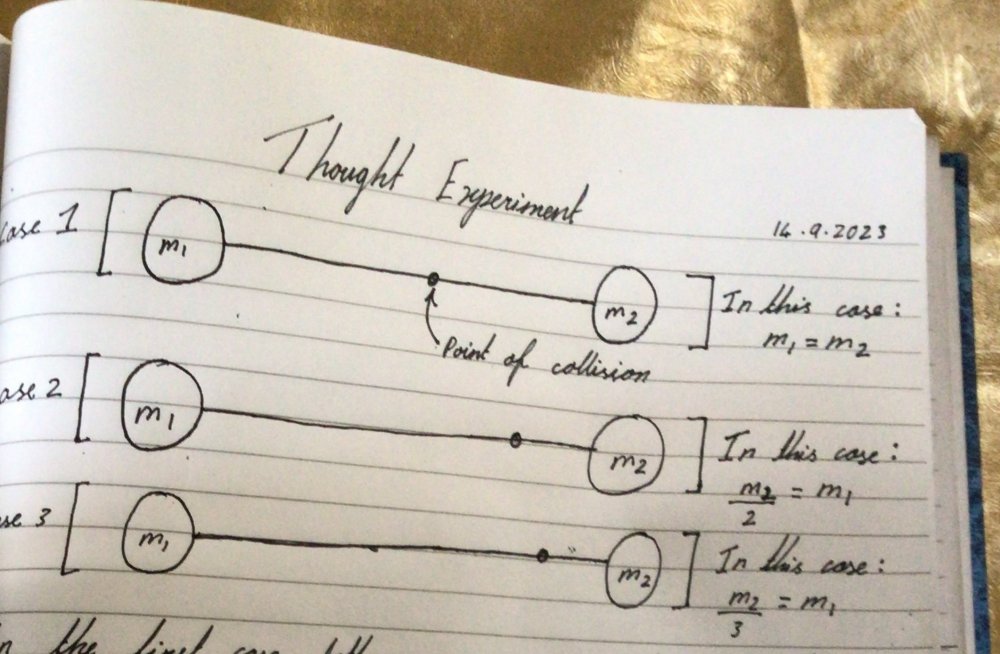 Thought Experiment
14.9.2023
Case 1
m1
m2
In this case:
m1 = m2
Point of collision
ase 2
m1
m2
In this case:
m2/2 = m1
se 3
m1
m2
In this case:
m2/3 = m1
n the first case